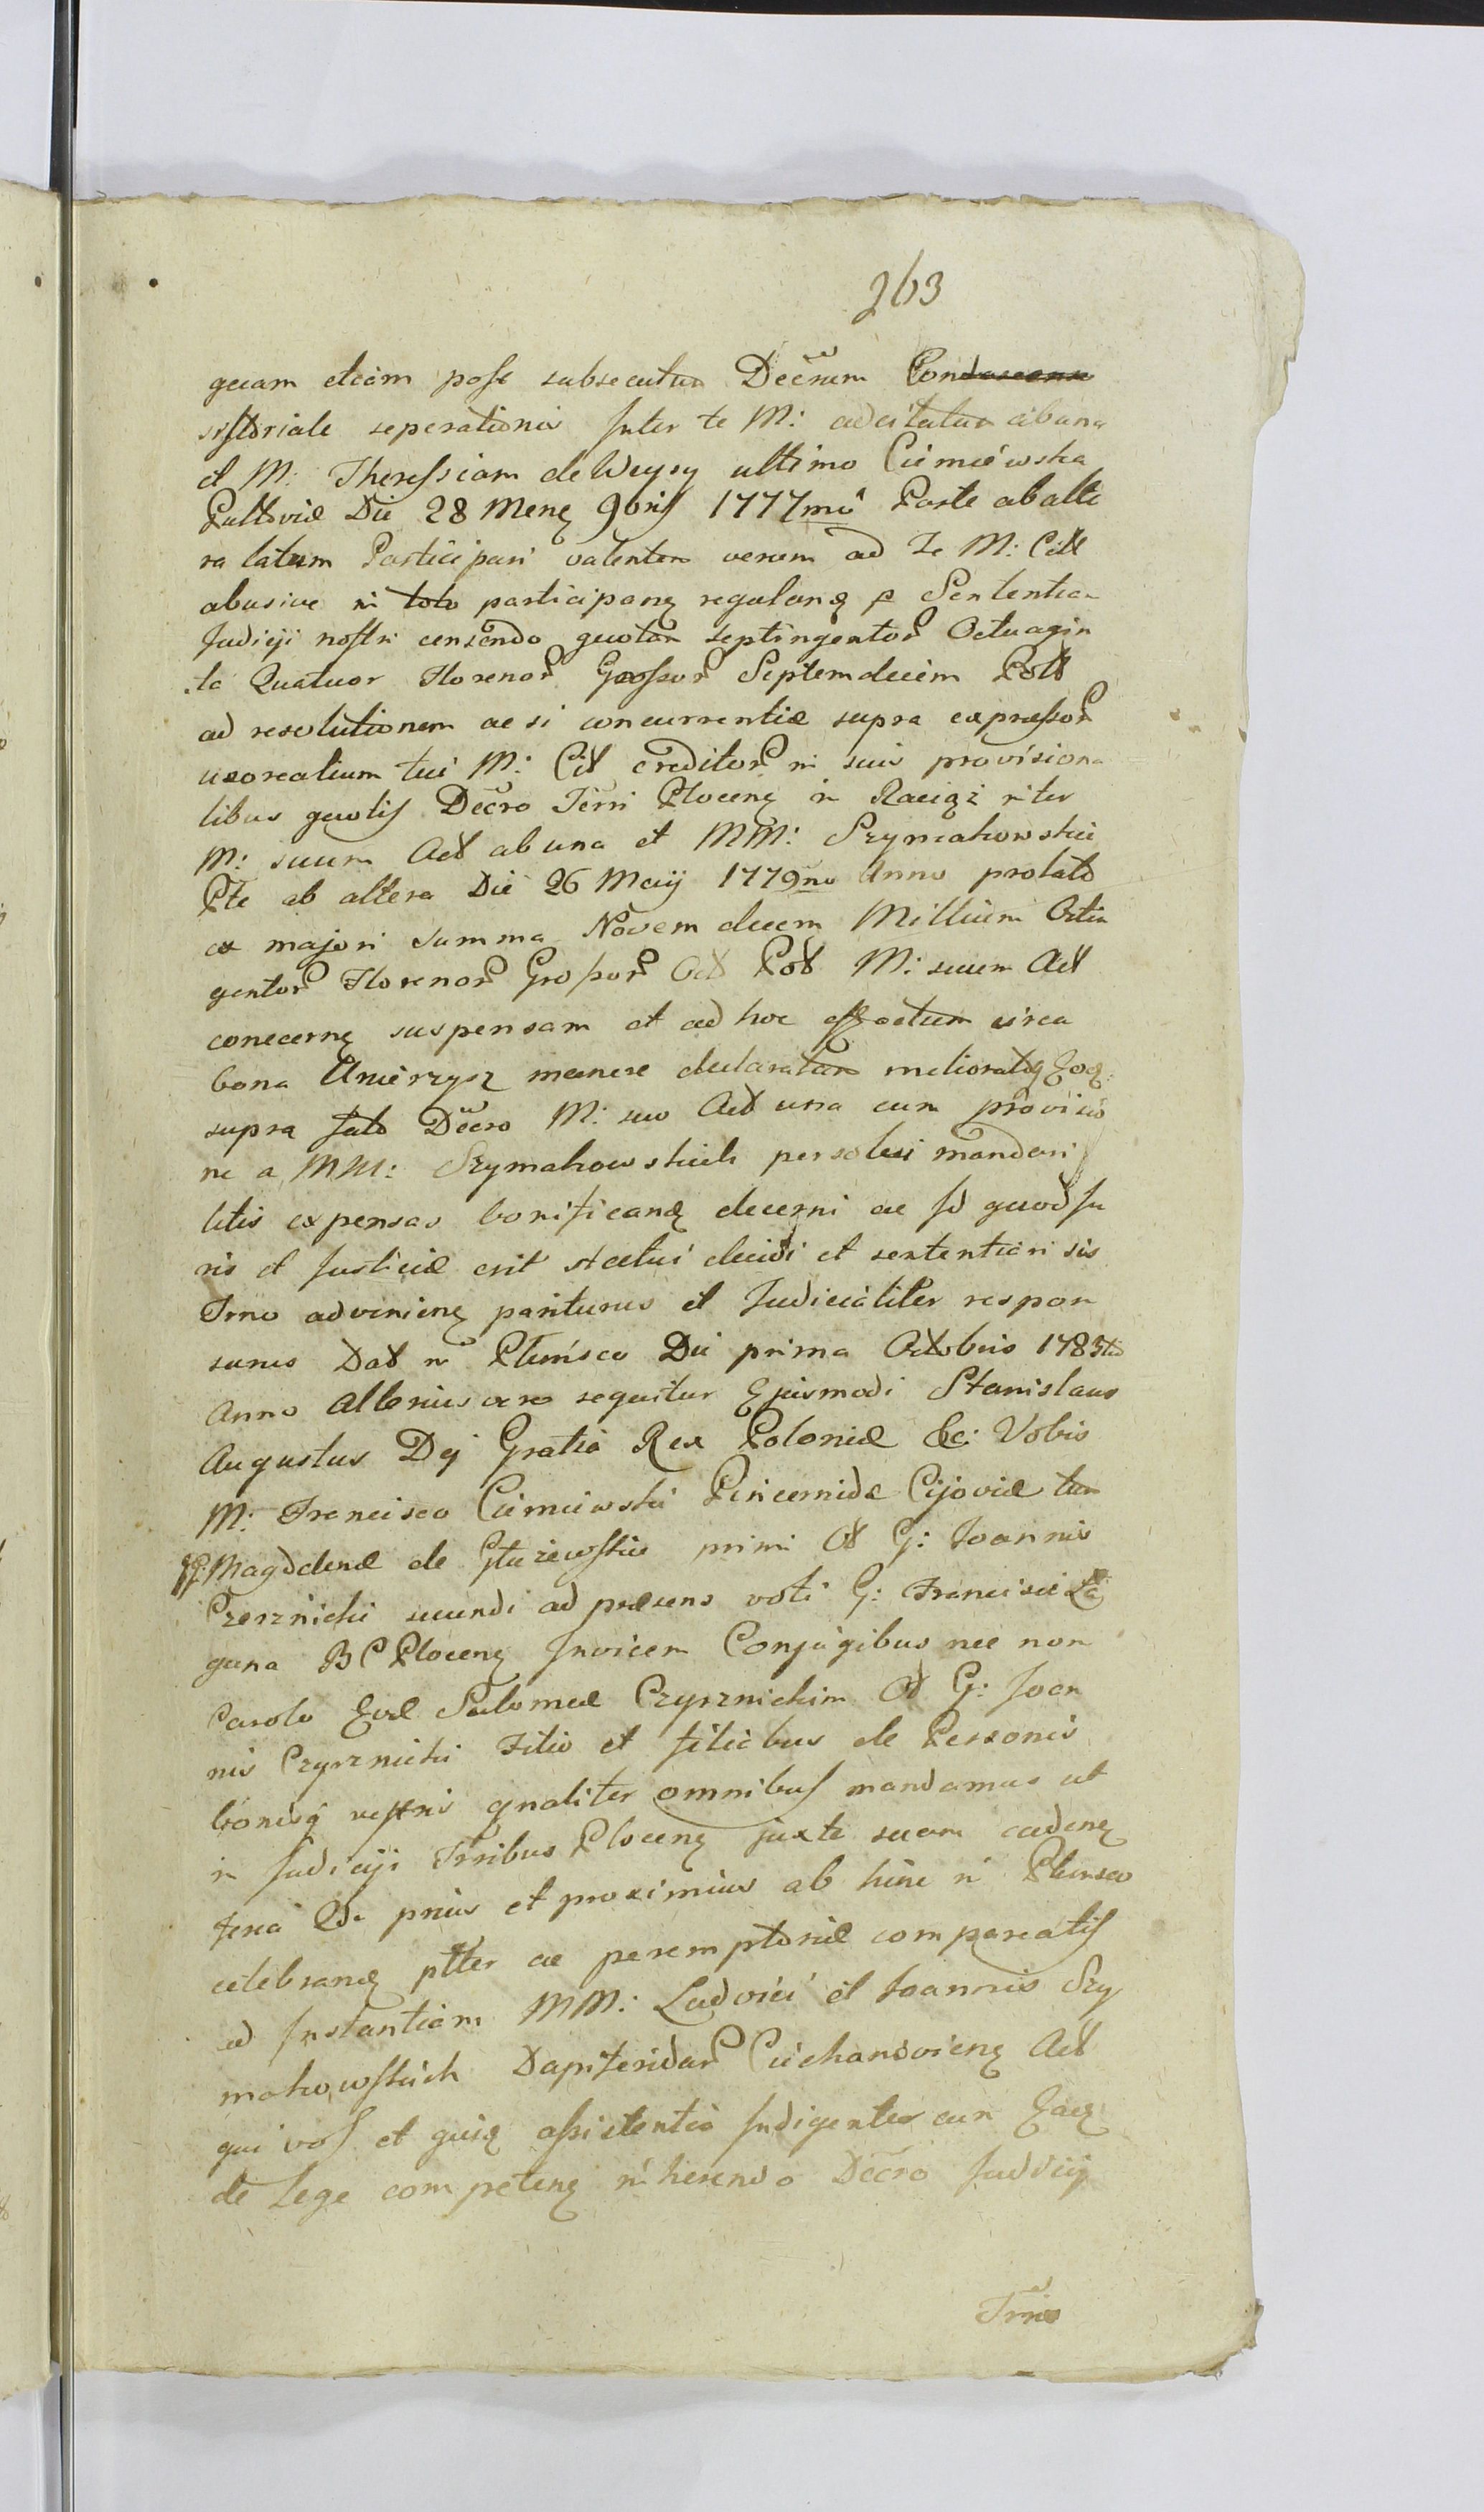 263
quam etiam post subsecutum Decrum Con
sistoriale seperationis Inter te M: adcitatum ab una
et M: Theressiam de Weysy ultimo Ciemniewska
Pultoviæ Die 28 Mens 9bris 1777mo Parte ab alte
ra latum Participari valentem verum ad Te M: Citt
abusive in toto participans regulans p Sententiam
Judicij nostri censendo quotam septingentor Octuagin
ta Quatuor Florenor Grossor Septemdecim Poll
ad resolutionem ac si concurrentiæ supra expressor
uxorealium tui M: Cit creditor in suis provisiona
libus quotis Decro Terri Plocens in Raciąż inter
M: suum Act ab una et MM: Szymakowskie
Pte ab altera Die 26 Maij 1779no Anno prolato
ex majori Summa Novem decem Millium Octin
gentor Florenor Grossor Oct Pol M: suum Act
concerne suspensam et ad hoc effectum circa
bona Umierzysz manere declaratam melioratq Eoq
supra fato Decro M: suo Act una cum provisio
ne a MM: Szymakowskich persolvi mandari
litis expensas bonificand decerni ac Id quod Iu
ris et Justiciæ erit statui decidi et sententiari sis
Trno adveniens pariturus et Judicialiter respon
surus Dat in Plonsco Die prima Octobris 1783tio
Anno Alterius vero sequitur Ejusmodi Stanislaus
Augustus Dej Gratia Rex Poloniæ &c: Vobis
M: Francisco Ciemniewski Pincernidæ Cijoviæ tum
G: Magdalenæ de Głuzewskie primi Ol G: Joannis
Czerznicki secundi ad præsens voti G: Francisci La
guna B C Plocens Invicem Conjugibus nec non
Carolo Evæ Salomeæ Czyrznickim Ol G: Joan
nis Czyrznicki Filio et filiabus de Personis
bonisq vestris gnaliter omnibus mandamus ut
in Judicijs Trribus Plocens juxta suam cadens
feria Qta prius et proximius ab hinc in Plonsco
celebrand ptter ac peremptorie compareatis
ad Instantiam MM: Ludovici et Joannis Szy
makowskich Dapiferidar Ciechanoviens Act
qui vos et quisq assistentia Indigentes cum Eaq
de Lege competens inherendo Decro Judicij
Trris